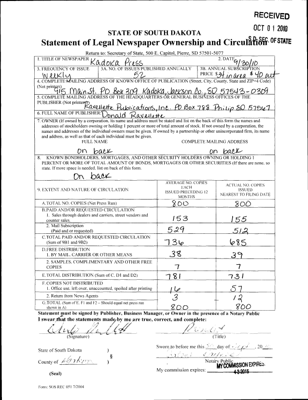 RECEIVED
OCT 01 2010
S.D. SEC. OF STATE
STATE OF SOUTH DAKOTA
Statement of Legal Newspaper Ownership and Circulation
Return to: Secretary of State, 500 E. Capitol, Pierre, SD 57501-5077
1. TITLE OF NEWSPAPER Kadoka Press
2. DATE 9/30/10
3. FREQUENCY OF ISSUE Weekly
3A. NO. OF ISSUES PUBLISHED ANNUALLY 52
3B. ANNUAL SUBSCRIPTION PRICE
4. COMPLETE MAILING ADDRESS OF KNOWN OFFICE OF PUBLICATION (Street, City, County, State and Zip+4 Code)
(Not printers) 915 Main St. PO Box 309 Kadoka, Jackson Co. SD 57543-0309
5. COMPLETE MAILING ADDRESS OF THE HEADQUARTERS OR GENERAL BUSINESS OFFICES OF THE
PUBLISHER (Not printer) Ravellette Publications, Inc. PO Box 788 Philip SD 57567
6. FULL NAME OF PUBLISHER Donald Ravellette
7. OWNER (If owned by a corporation, its name and address must be stated and list on the back of this form the names and
addresses of stockholders owning or holding 1 percent or more of total amount of stock. If not owned by a corporation, the
names and addresses of the individual owners must be given. If owned by a partnership or other unincorporated firm, its name
and address, as well as that of each individual must be given.
on back on back
8. KNOWN BONDHOLDERS, MORTGAGES, AND OTHER SECURITY HOLDERS OWNING OR HOLDING 1
PERCENT OR MORE OF TOTAL AMOUNT OF BONDS, MORTGAGES OR OTHER SECURITIES (If there are none, so
state. If more space is needed, list on back of this form).
On back
9. EXTENT AND NATURE OF CIRCULATION
AVERAGE NO. COPIES EACH ISSUE DURING PRECEDING 12 MONTHS
ACTUAL NO. COPIES ISSUED NEAREST TO FILING DATE
A. TOTAL NO. COPIES (Net Press Run) 800 800
B. PAID AND/OR REQUESTED CIRCULATION
1. Sales through dealers and carriers, street vendors and
counter sales 153 155
2. Mail Subscription
(Paid and/or requested) 529 512
C. TOTAL PAID AND/OR REQUESTED CIRCULATION
(Sum of 9B1 and 9B2) 736 685
D. FREE DISTRIBUTION
1. BY MAIL, CARRIER OR OTHER MEANS 38 39
2. SAMPLES, COMPLIMENTARY AND OTHER FREE
COPIES 7 7
E. TOTAL DISTRIBUTION (Sum of C, D1 and D2) 781 731
F. COPIES NOT DISTRIBUTED
1. Office use, left over, unaccounted, spoiled after printing 16 57
2. Return from News Agents 3 12
G. TOTAL (Sum of E, F1 and F2 - Should equal net press run
shown in A) 800 800
Statement must be signed by Publisher, Business Manager, or Owner in the presence of a Notary Public
I swear that the statements made by me are true, correct, and complete:
State of South Dakota )
County of )
(Seal)
Sworn to before me this
(Notary Public)
My commission expires: MY COMMISSION EXPIRES